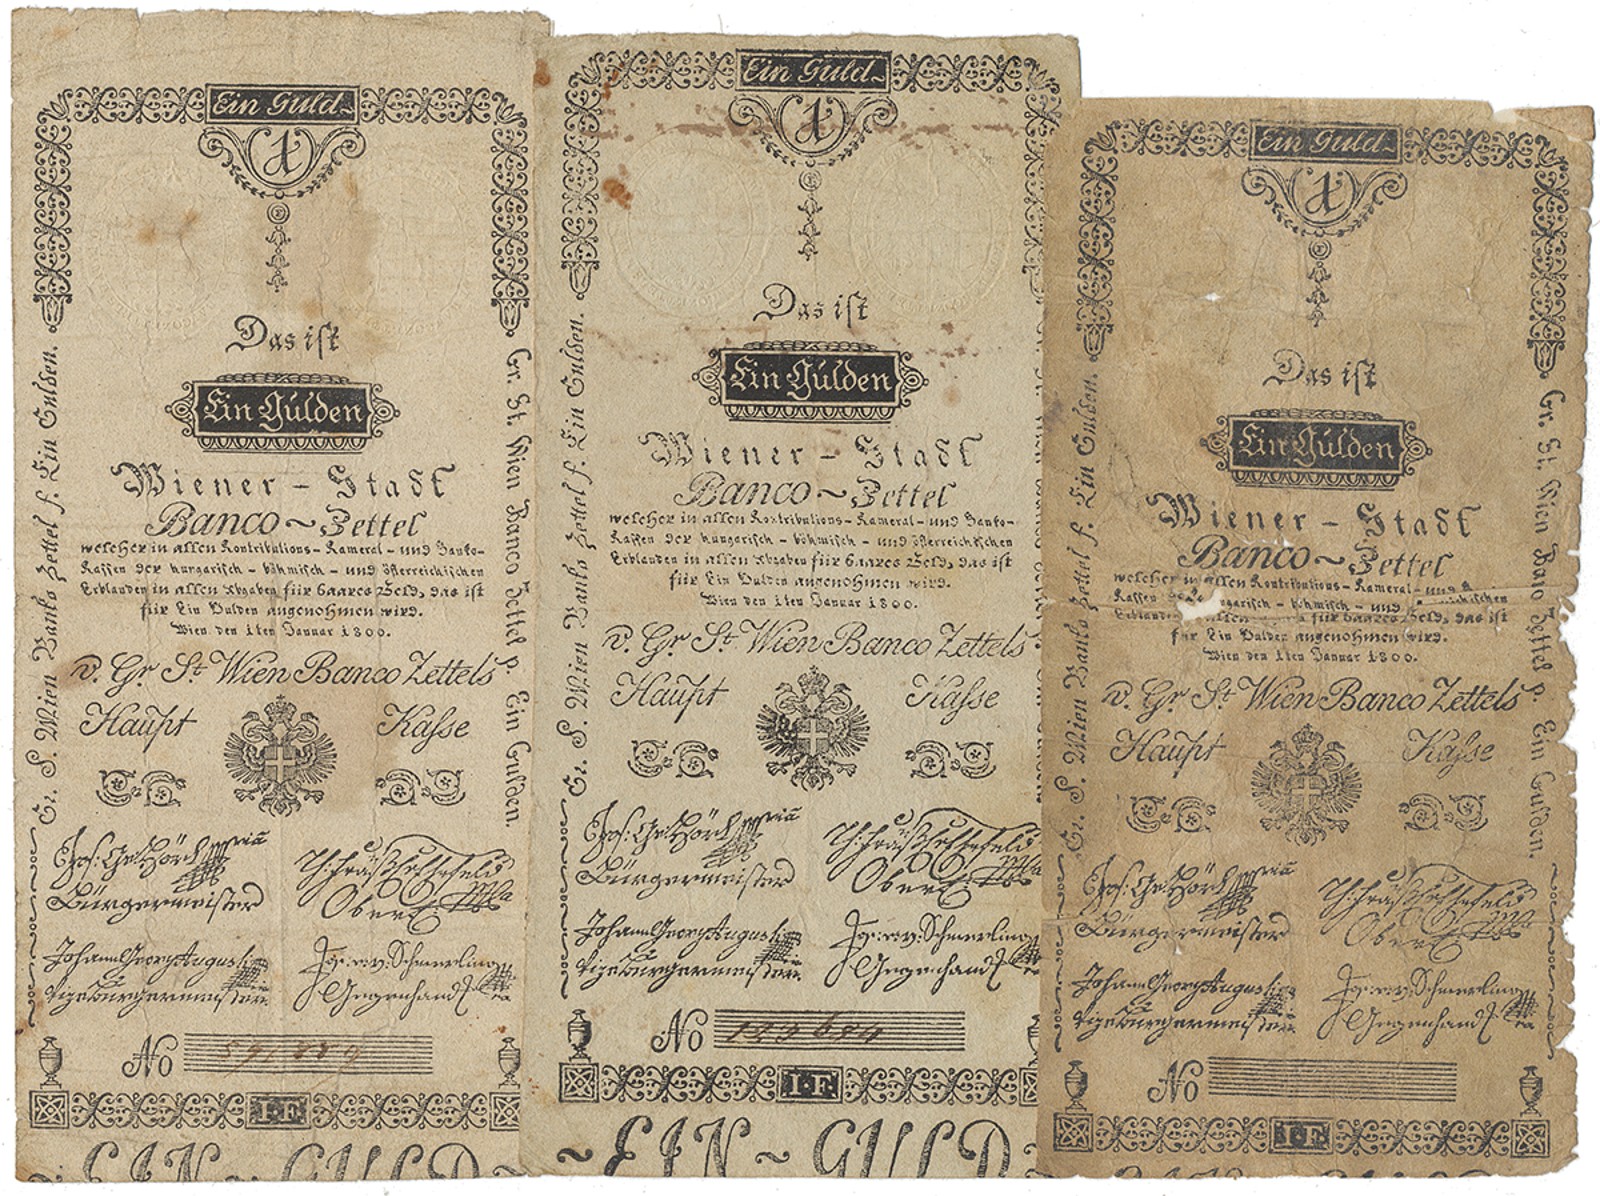 Ein Guld
1
F
Das ist
Ein Gulden
Wiener - Stadt
Banco ~ Zettel
welcher in allen Kontributions- Kameral- und Banko-
Kassen der hungarisch- böhmisch- und österreichischen
Erblanden in allen Abgaben für baares Geld, das ist
für Ein Gulden angenohmen wird.
Wien den 1ten Januar 1800.
v. Gr St Wien Banco Zettels
Haupt Kasse
Gr. S. Wien Banko Zettel f. Ein Gulden.
Gr. St. Wien Banco Zettel p. Ein Gulden.
Bürgermeister
Ober
Johann Georg Augusti
Vizebürgermeister
v. Schmerling
Gegenhand
No
I·F.
EIN ~ GULD
Ein Guld
1
F
Das ist
Ein Gülden
Wiener - Stadt
Banco ~ Zettel
welcher in allen Kontributions- Kameral- und Banko-
Kassen der hungarisch- böhmisch- und österreichischen
Erblanden in allen Abgaben für baares Geld, das ist
für Ein Gulden angenohmen wird.
Wien den 1ten Januar 1800.
v. Gr St Wien Banco Zettels
Haupt Kasse
Gr. S. Wien Banko Zettel f. Ein Gulden.
Bürgermeister
Ober
Johann Georg Augusti
Vizebürgermeister
v. Schmerling
Gegenhand
No 123684
I·F.
~ EIN ~ GULD
Ein Guld
1
F
Das ist
Ein Gülden
Wiener - Stadt
Banco ~ Zettel
welcher in allen Kontributions- Kameral- und
Kassen garisch- böhmisch- und
Erblanden allen für baares Geld, das ist
für Ein Gulden angenohmen wird.
Wien den 1ten Januar 1800.
v. Gr St Wien Banco Zettels
Haupt Kasse
Gr. S. Wien Banko Zettel f. Ein Gulden.
Gr. St. Wien Banco Zettel p. Ein Gulden.
Bürgermeister
Ober
Johann Georg Augusti
Vizebürgermeister
v. Schmerling
Gegenhand
No
I·F.